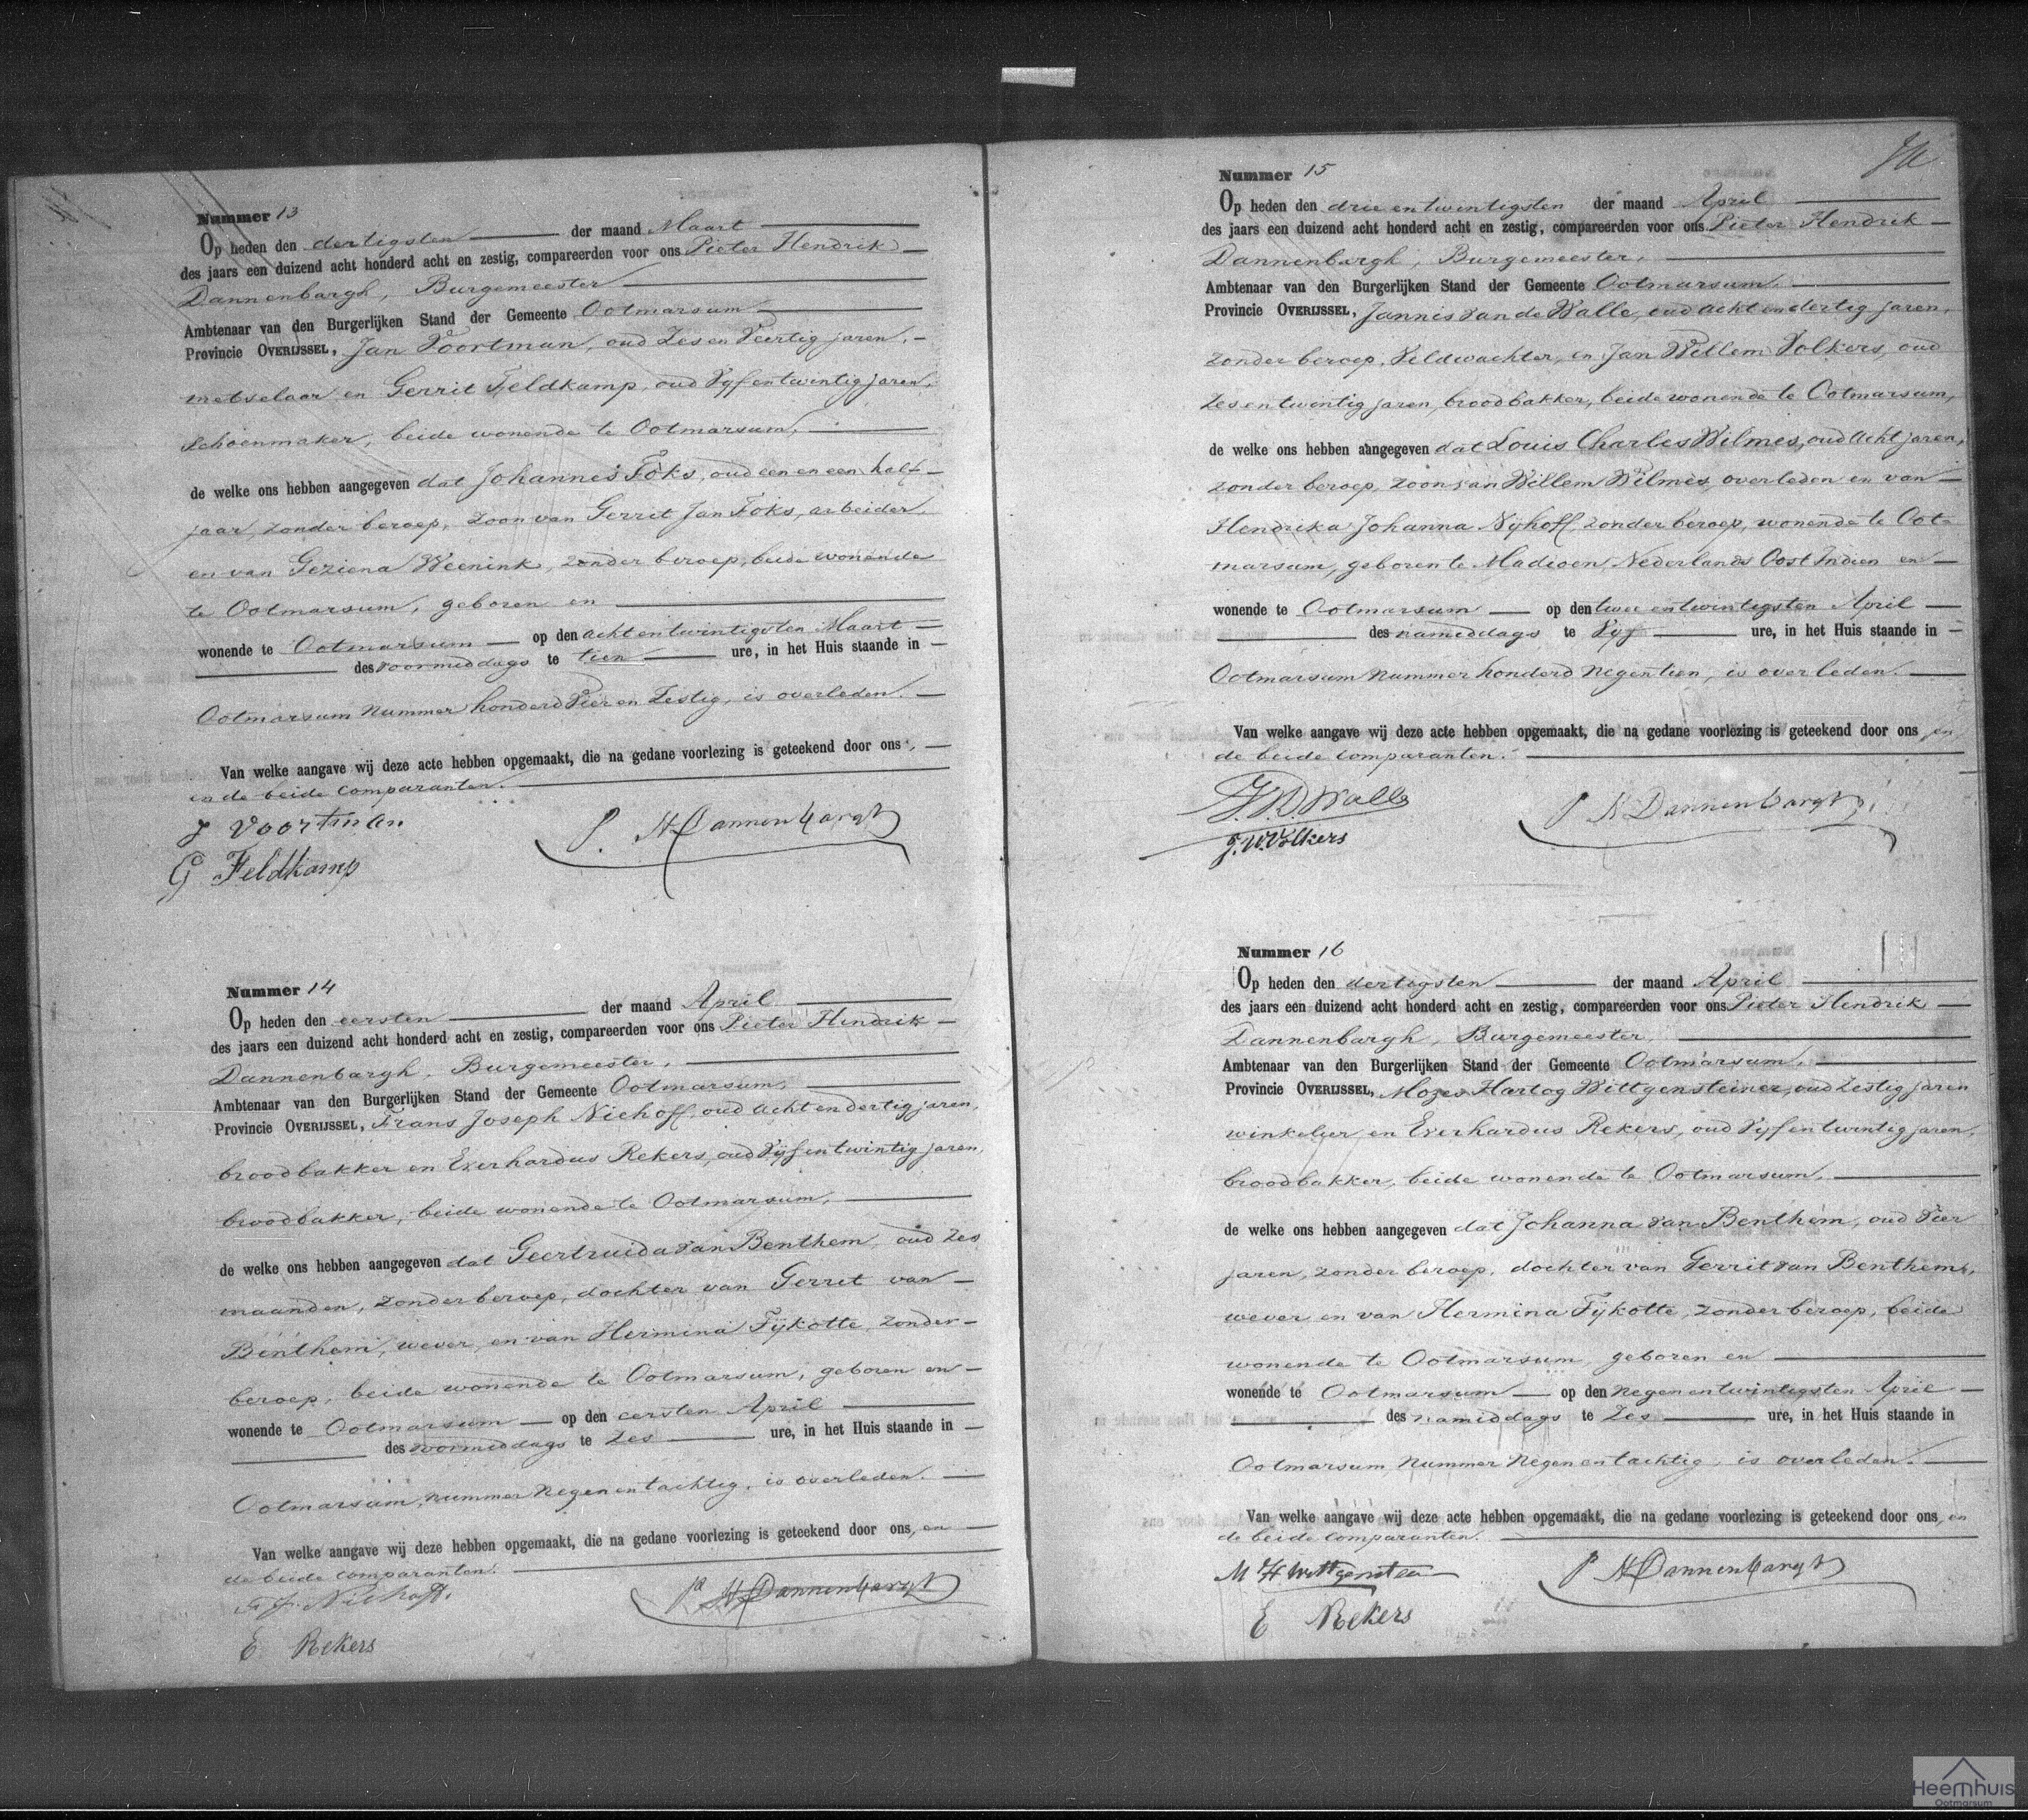 Nummer 13
Op heden den dertigsten der maand Maart
des jaars een duizend acht honderd acht en zestig, compareerden voor ons Pieter Hendrik
Dannenbargh, Burgemeester
Ambtenaar van den Burgerlijken Stand der Gemeente Ootmarsum
Provincie OVERIJSSEL, Jan Voortman, oud Zes en Veertig jaren,
metselaar en Gerrit Feldkamp, oud Vyf en twintig jaren,
Schoenmaker, beide wonende te Ootmarsum,
de welke ons hebben aangegeven dat Johannes Foks, oud een en een half
jaar, zonder beroep, zoon van Gerrit Jan Foks, arbeider
en van Geziena Weenink, zonder beroep, beide wonende
te Ootmarsum, geboren en
wonende te Ootmarsum op den acht en twintigsten Maart
des voormiddags te tien ure, in het Huis staande in
Ootmarsum Nummer honderd Vier en Zestig, is overleden.
Van welke aangave wij deze acte hebben opgemaakt, die na gedane voorlezing is geteekend door ons,
en de beide comparanten.
J Voortman
P. H Dannenbargh
G Feldkamp
Nummer 14
Op heden den eersten der maand April
des jaars een duizend acht honderd acht en zestig, compareerden voor ons Pieter Hendrik
Dannenbargh, Burgemeester,
Ambtenaar van den Burgerlijken Stand der Gemeente Ootmarsum,
Provincie OVERIJSSEL, Frans Joseph Niehoff, oud acht en dertig jaren,
broodbakker en Everhardus Rekers, oud Vijf en twintig jaren,
broodbakker, beide wonende te Ootmarsum,
de welke ons hebben aangegeven dat Geertruida van Benthem, oud Zes
maanden, zonder beroep, dochter van Gerret van
Benthem, wever, en van Hermina Fijkotte, zonder
beroep, beide wonende te Ootmarsum, geboren en
wonende te Ootmarsum op den eersten April
des voormiddags te Zes ure, in het Huis staande in
Ootmarsum, nummer Negen en tachtig, is overleden.
Van welke aangave wij deze hebben opgemaakt, die na gedane voorlezing is geteekend door ons, en
de beide comparanten.
F. J. Niehoff.
P H Dannenbargh
E Rekers
Nummer 15
Op heden den drie en twintigsten der maand April
des jaars een duizend acht honderd acht en zestig, compareerden voor ons Pieter Hendrik
Dannenbargh, Burgemeester,
Ambtenaar van den Burgerlijken Stand der Gemeente Ootmarsum,
Provincie OVERIJSSEL, Jannis van de Walle, oud acht en dertig jaren,
zonder beroep, Veldwachter, en Jan Willem Volkers, oud
Zes en twintig jaren, broodbakker, beide wonende te Ootmarsum,
de welke ons hebben aangegeven dat Louis Charles Wilmes, oud acht jaren,
zonder beroep, zoon van Willem Wilmes, overleden en van
Hendrika Johanna Nijhoff, zonder beroep, wonende te Oot-
marsum, geboren te Madioen, Nederlands Oost Indien en
wonende te Ootmarsum op den twee en twintigsten April
des namiddags te Vyf ure, in het Huis staande in
Ootmarsum Nummer honderd Negentien, is overleden.
Van welke aangave wij deze acte hebben opgemaakt, die na gedane voorlezing is geteekend door ons en
de beide comparanten.
P H Dannenbargh
J.W. Volkers
Nummer 16
Op heden den dertigsten der maand April
des jaars een duizend acht honderd acht en zestig, compareerden voor ons Pieter Hendrik
Dannenbargh, Burgemeester,
Ambtenaar van den Burgerlijken Stand der Gemeente Ootmarsum,
Provincie OVERIJSSEL, Mozes Hartog Wittgensteiner, oud Zestig jaren
winkelier en Everhardus Rekers, oud Vyf en twintig jaren,
broodbakker, beide wonende te Ootmarsum,
de welke ons hebben aangegeven dat Johanna van Benthem, oud Vier
jaren, zonder beroep, dochter van Gerrit van Benthem,
wever en van Hermina Fijkotte, zonder beroep, beide
wonende te Ootmarsum, geboren en
wonende te Ootmarsum op den Negen en twintigsten April
des namiddags te Zes ure, in het Huis staande in
Ootmarsum Nummer Negen en tachtig, is overleden.
Van welke aangave wij deze acte hebben opgemaakt, die na gedane voorlezing is geteekend door ons, en
de beide comparanten.
P H Dannenbargh
E Rekers
Heemhuis
Ootmarsum